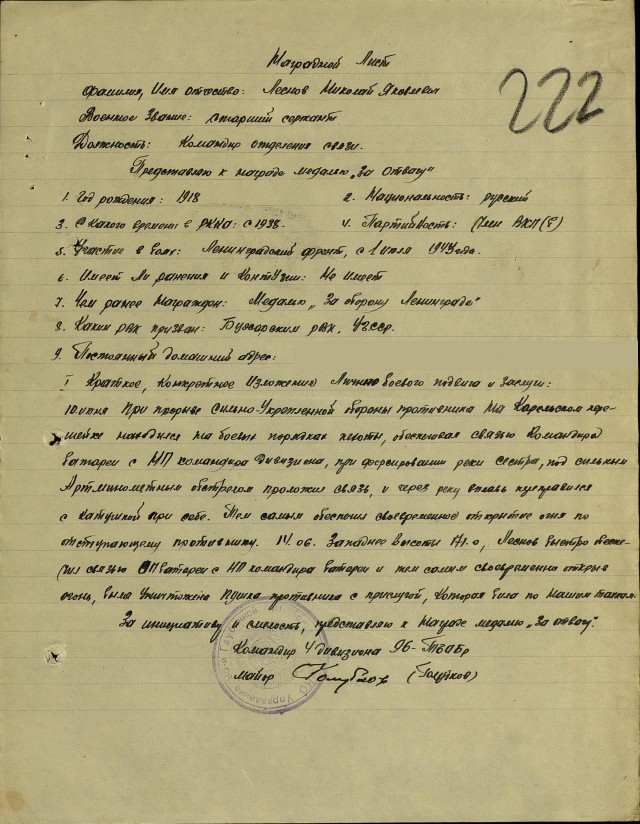 Наградной Лист
222
Фамилия, Имя отчество: Леснов Николай Яковлевич
Военное Звание: старший сержант
Должность: Командир отделения связи.
Представляю к награде медалью „За отвагу"
1. Год рождения: 1918 2. Национальность: русский
3. С какого времени в РККА: с 1938. 4. Партийность: Член ВКП(б)
5. Участие в боях: Ленинградский фронт, с 1 июля 1943 года.
6. Имеет ли ранения и контузии: Не имеет
7. Чем ранее награжден: Медалью „За оборону Ленинграда"
8. Каким РВК призван: Бухарским РВК, УзССР.
9. Постоянный домашний адрес:
I Краткое, конкретное изложение личного боевого подвига и заслуги:
10 июня При прорыве сильно-укрепленной обороны противника на Карельском пере-
шейке находился на боевых порядках пехоты, обеспечивая связью Командира
батареи с НП командира дивизиона, при форсировании реки Сестра, под сильным
Артминометным обстрелом проложил связь, и через реку вплавь переправился
с катушкой при себе. Тем самым обеспечил своевременное открытие огня по
отступающему противнику. 14.06. Западнее высоты 171.0, Леснов быстро обеспе-
чил связью ОП батареи с НП командира батареи и тем самым своевременно открыв
огонь, была уничтожена пушка противника с прислугой, которая била по нашим танкам.
За инициативу и смелость, представляю к награде медалью „За отвагу".
Командир 4 дивизиона 96-ТГАБр
майор (Голубков)